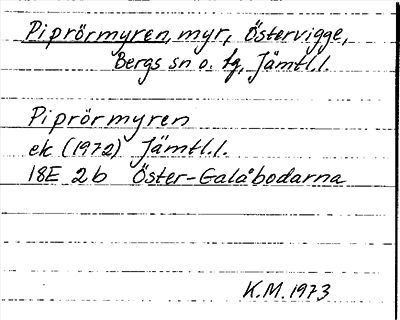 Piprörmyren, myr, Östervigge,
Bergs sn o. tg, Jämtl.l.
Piprörmyren
ek (1972) Jämtl.l.
18E 2b Öster-Galåbodarna
K.M. 1973